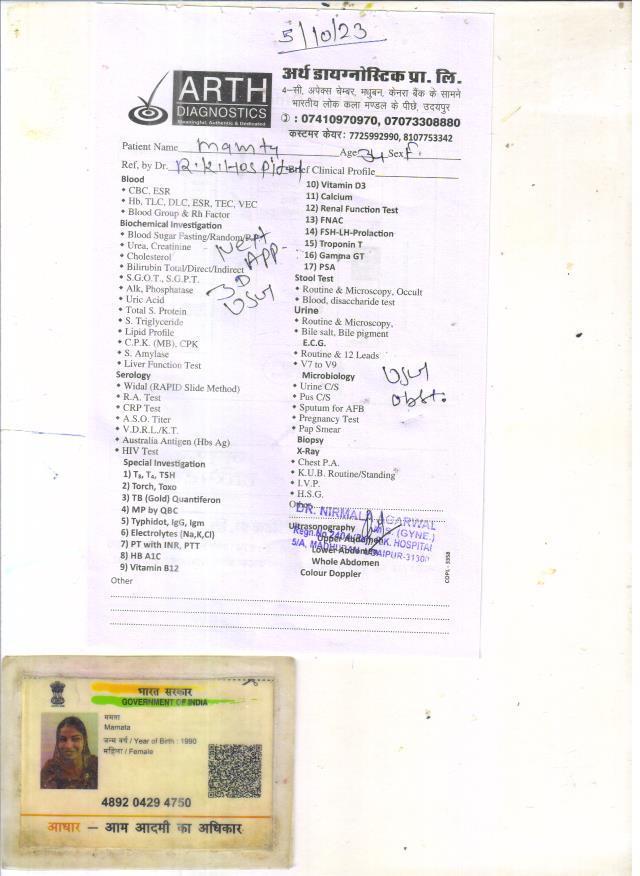 5/10/23
ARTH
DIAGNOSTICS
Meaningful, Authentic & Dedicated
अर्थ डायग्नोस्टिक प्रा. लि.
4-सी, अपेक्स चेम्बर, मधुबन, केनरा बैंक के सामने
भारतीय लोक कला मण्डल के पीछे, उदयपुर
: 07410970970, 07073308880
कस्टमर केयर: 7725992990, 8107753342
Patient Name mamta Age 34 Sex F.
Ref, by Dr. R.K. Hospital Brief Clinical Profile
Blood
CBC, ESR
Hb, TLC, DLC, ESR, TEC, VEC
Blood Group & Rh Factor
Biochemical Investigation
Blood Sugar Fasting/Random/
Urea, Creatinine
Cholesterol
Bilirubin Total/Direct/Indirect
S.G.O.T., S.G.P.T.
Alk, Phosphatase
Uric Acid
Total S. Protein
S. Triglyceride
Lipid Profile
C.P.K. (MB), CPK
S. Amylase
Liver Function Test
Serology
Widal (RAPID Slide Method)
R.A. Test
CRP Test
A.S.O. Titer
V.D.R.L./K.T.
Australia Antigen (Hbs Ag)
HIV Test
Special Investigation
1) T₃, T₄, TSH
2) Torch, Toxo
3) TB (Gold) Quantiferon
4) MP by QBC
5) Typhidot, IgG, Igm
6) Electrolytes (Na,K,Cl)
7) PT with INR, PTT
8) HB A1C
9) Vitamin B12
Other
NEXT
APP-
3D
USG
10) Vitamin D3
11) Calcium
12) Renal Function Test
13) FNAC
14) FSH-LH-Prolaction
15) Troponin T
16) Gamma GT
17) PSA
Stool Test
Routine & Microscopy, Occult
Blood, disaccharide test
Urine
Routine & Microscopy,
Bile salt, Bile pigment
E.C.G.
Routine & 12 Leads
V7 to V9
Microbiology
Urine C/S
Pus C/S
Sputum for AFB
Pregnancy Test
Pap Smear
Biopsy
X-Ray
Chest P.A.
K.U.B. Routine/Standing
I.V.P.
H.S.G.
Other
Ultrasonography
Upper Abdomen
Lower Abdomen
Whole Abdomen
Colour Doppler
USG
obst.
DR. NIRMALA AGARWAL
M.S. (GYNE.)
Regn.No. HOSPITAL
5/A, MADHUBAN, UDAIPUR-31300
COPL - 3958
भारत सरकार
GOVERNMENT OF INDIA
ममता
Mamata
जन्म वर्ष / Year of Birth : 1990
महिला / Female
4892 0429 4750
आधार – आम आदमी का अधिकार